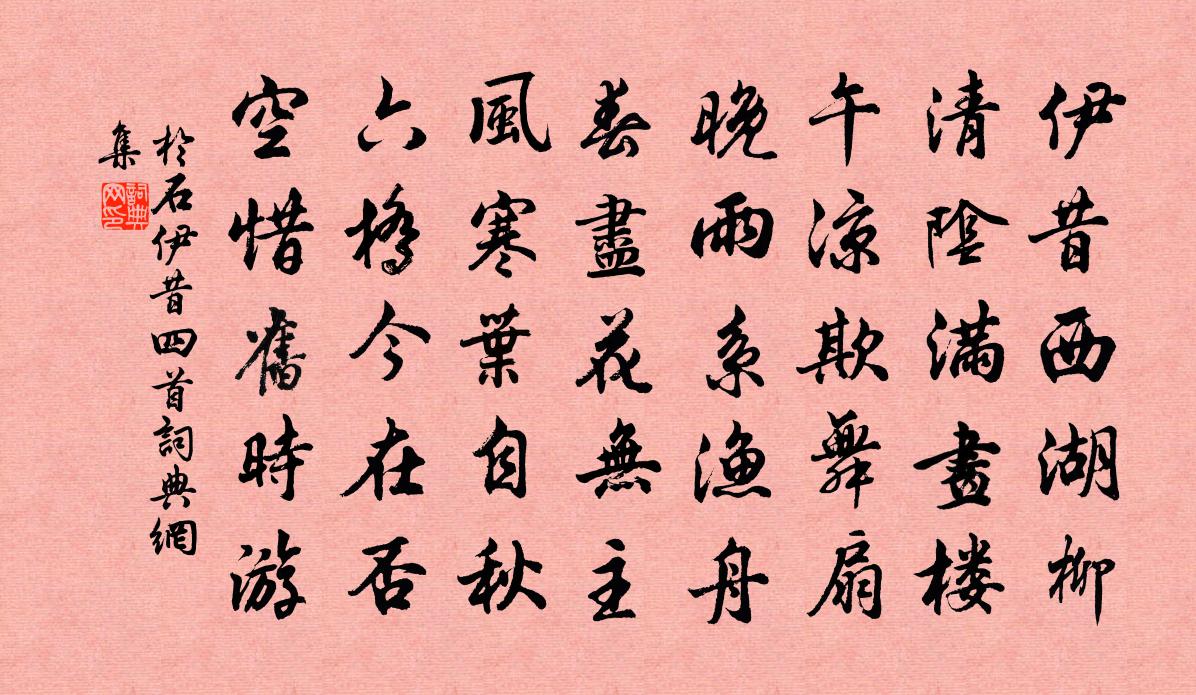 伊昔西湖柳
清陰滿畫楼
午涼欺舞扇
晚雨系漁舟
春盡花無主
風寒葉自秋
六橋今在否
空惜舊時游
於石伊昔四首詞典網
集
詞典
网印